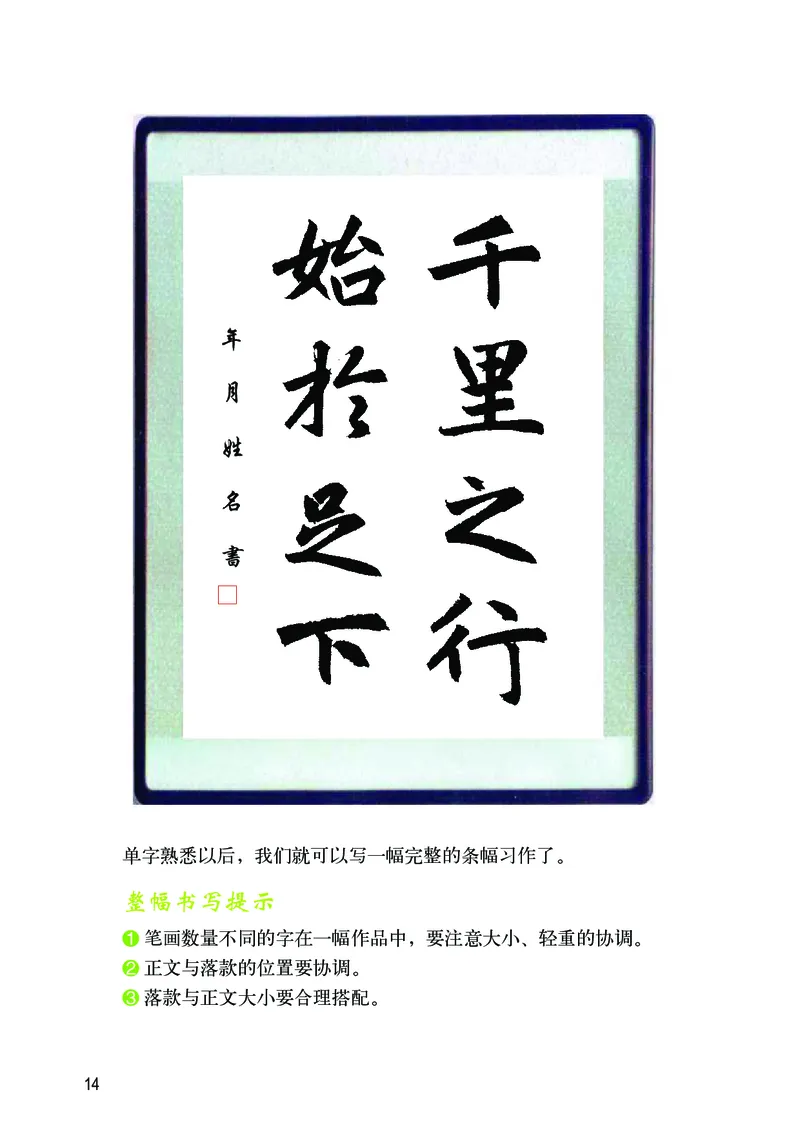 千里之行
始於足下
年月姓名書
单字熟悉以后，我们就可以写一幅完整的条幅习作了。
整幅书写提示
❶ 笔画数量不同的字在一幅作品中，要注意大小、轻重的协调。
❷ 正文与落款的位置要协调。
❸ 落款与正文大小要合理搭配。
14